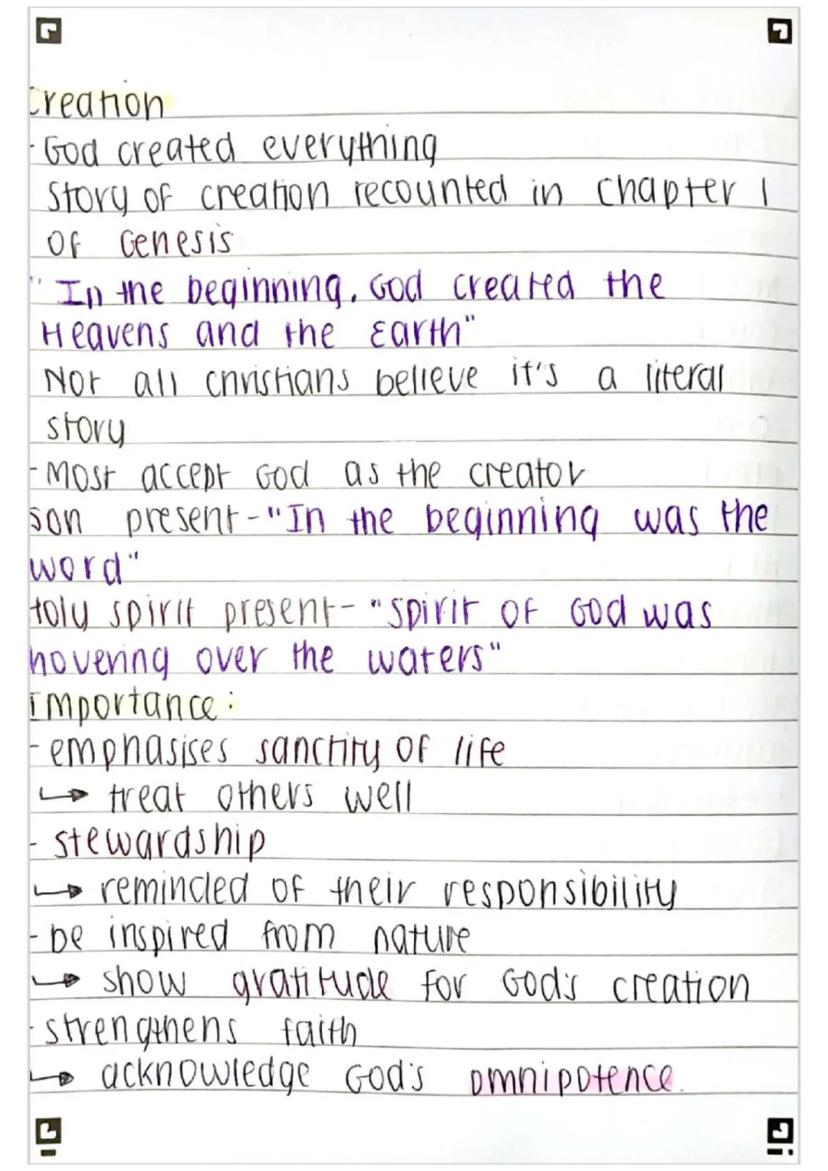 Creation
-God created everything
Story of creation recounted in chapter 1
of Genesis
"In the beginning, God created the
Heavens and the Earth"
Not all christians believe it's a literal
story
-Most accept God as the creator
Son present-"In the beginning was the
word"
Holy spirit present-"spirit of God was
hovering over the waters"
Importance:
-emphasises sanctity of life
↳ treat others well
- stewardship
↳ reminded of their responsibility
- be inspired from nature
↳ show gratitude for God's creation
-strengthens faith
↳ acknowledge God's omnipotence.